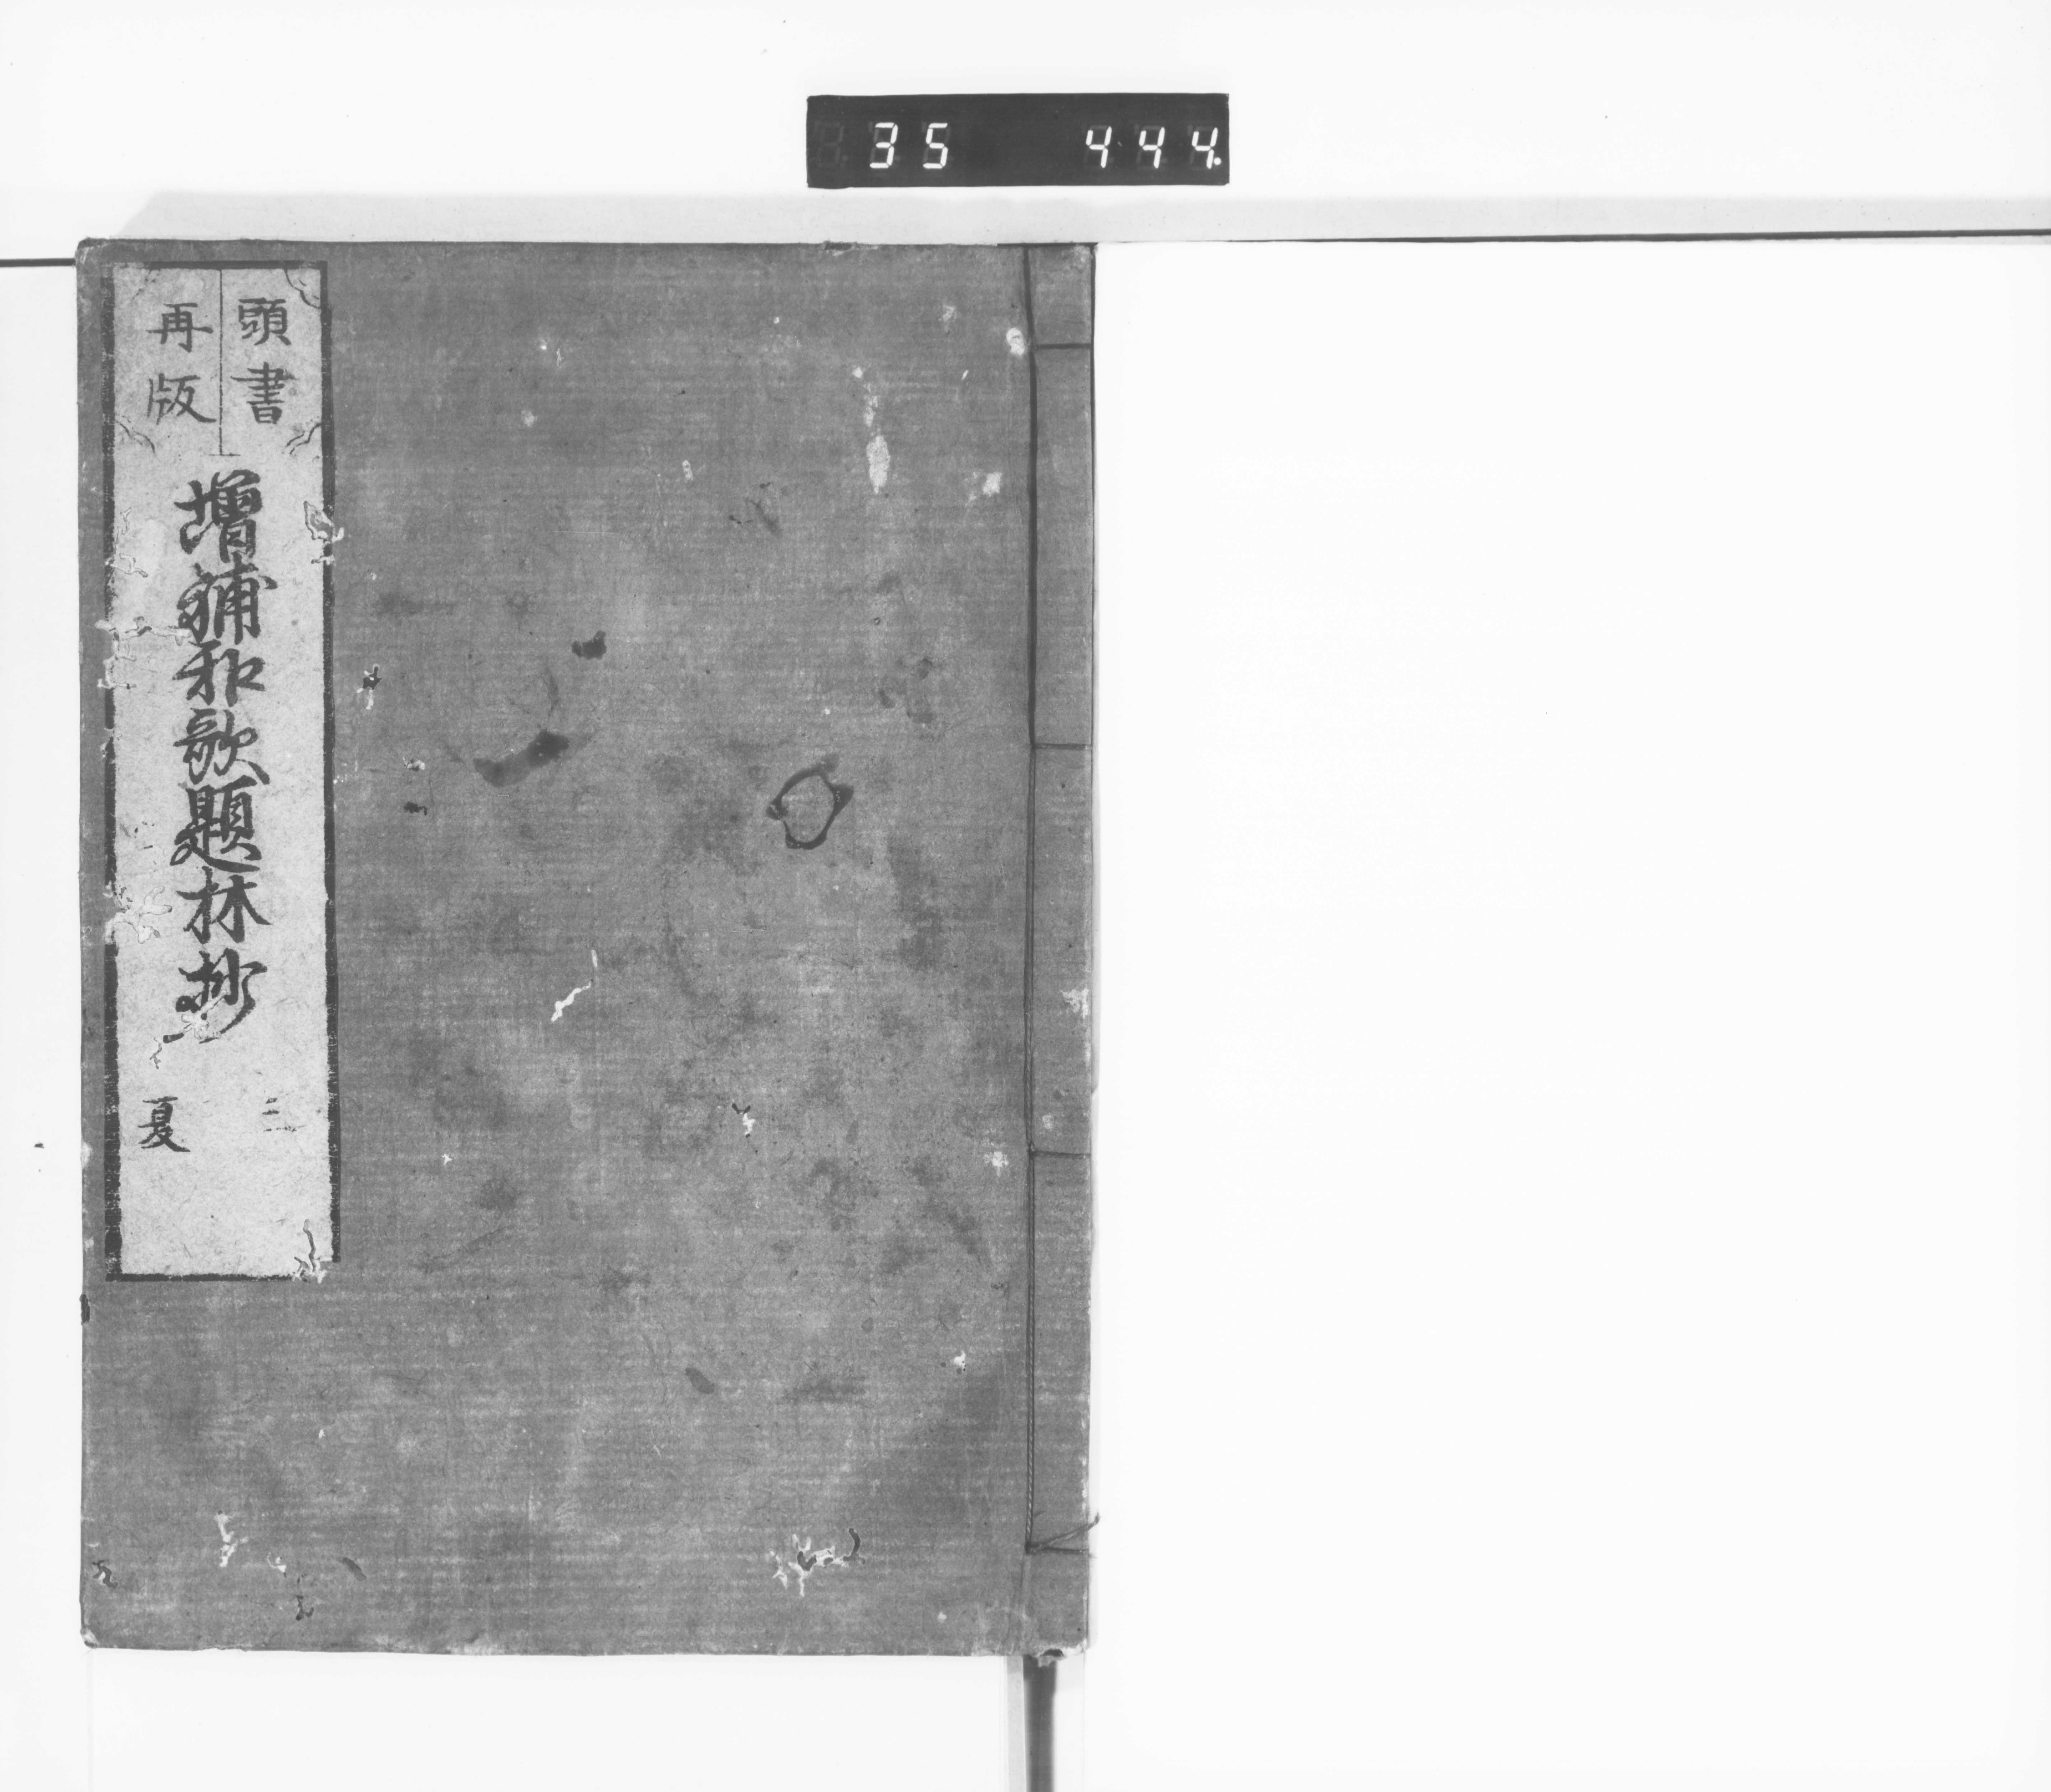 35 444.
頭書
再版
増補和歌題林抄
三
夏